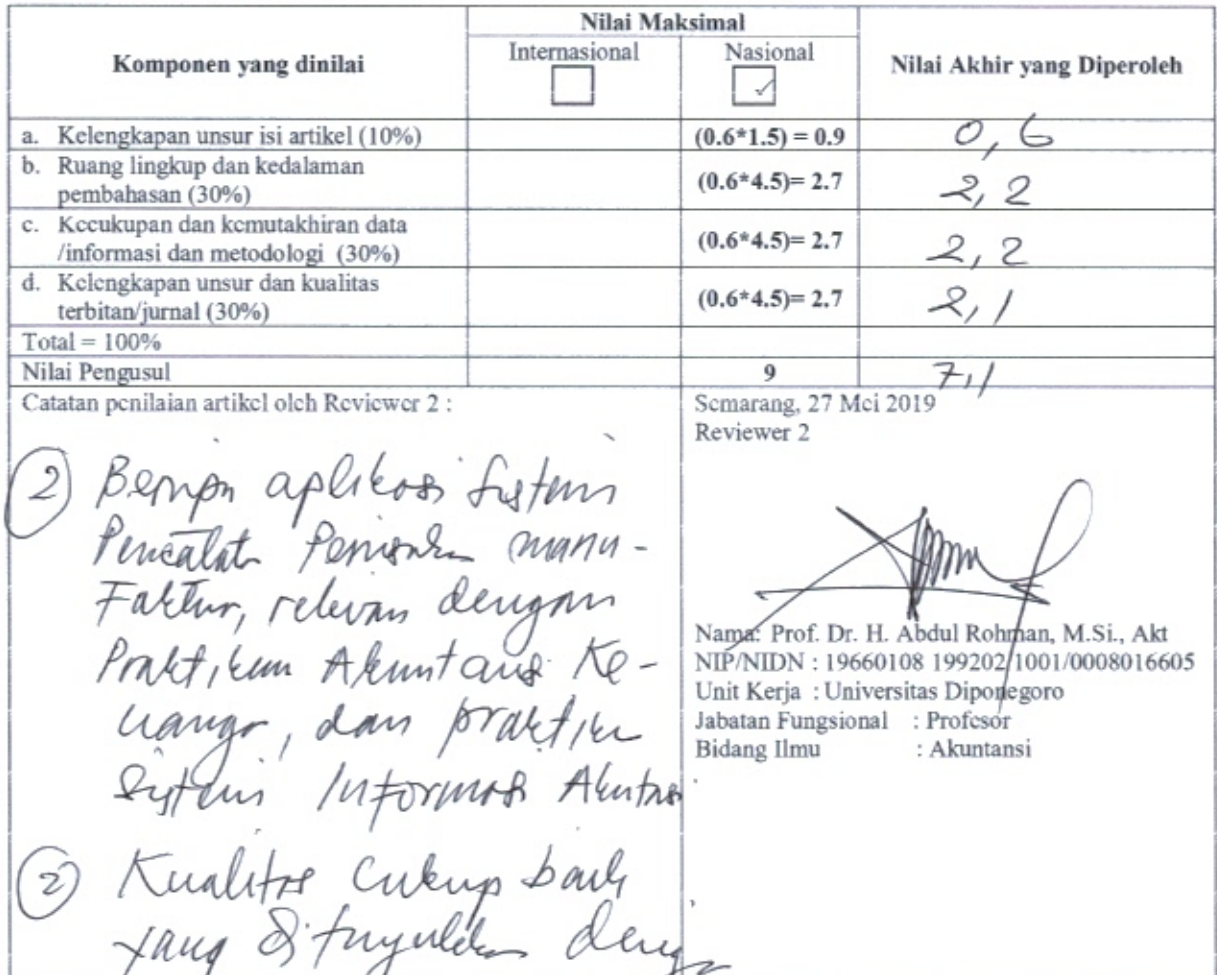 Nilai Maksimal
Komponen yang dinilai
Internasional
Nasional
Nilai Akhir yang Diperoleh
a. Kelengkapan unsur isi artikel (10%)
(0.6*1.5) = 0.9
0,6
b. Ruang lingkup dan kedalaman
pembahasan (30%)
(0.6*4.5)= 2.7
2,2
c. Kecukupan dan kemutakhiran data
/informasi dan metodologi (30%)
(0.6*4.5)= 2.7
2,2
d. Kelengkapan unsur dan kualitas
terbitan/jurnal (30%)
(0.6*4.5)= 2.7
2,1
Total = 100%
Nilai Pengusul
9
7,1
Catatan penilaian artikel oleh Reviewer 2 :
2) aplikasi Sistem
manu-
Faktur, relevan dengan
Praktikum Akuntansi Ke-
dan
Sistem Informasi
2) Kualitas cukup baik
yang
Semarang, 27 Mei 2019
Reviewer 2
Nama: Prof. Dr. H. Abdul Rohman, M.Si., Akt
NIP/NIDN : 19660108 199202 1001/0008016605
Unit Kerja : Universitas Diponegoro
Jabatan Fungsional : Profesor
Bidang Ilmu : Akuntansi